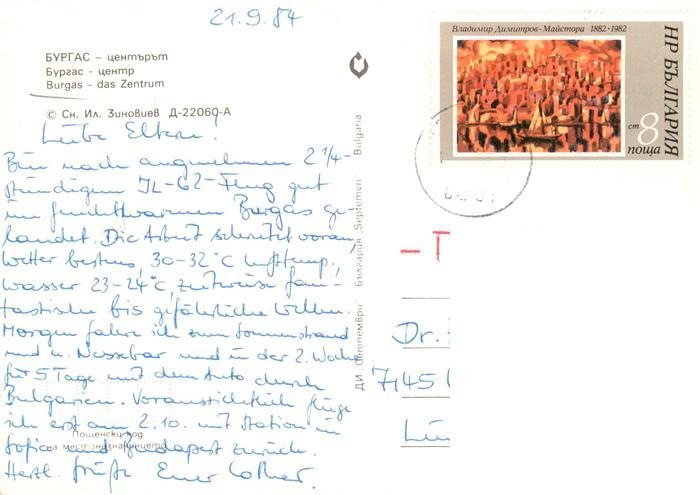 21.9.84
БУРГАС – центърът
Бургас - центр
Burgas - das Zentrum
© Сн. Ил. Зиновиев Д-22060-А
Liebe Eltern!
Bin nach angenehmen 2 1/4-
stündigem IL-62-Flug gut
im feuchtwarmen Burgas ge-
landet. Die Arbeit schreitet voran,
Wetter bestens, 30-32°C Lufttemp.,
Wasser 23-24°C, zeitweise fan-
tastische bis gefährliche Wellen.
Morgen fahre ich zum Sonnenstrand
und n. Nessebar und in der 2. Woche
für 5 Tage mit dem Auto durch
Bulgarien. Voraussichtlich fliege
ich erst am 2.10. mit Station in
Sofia und Budapest zurück.
Herzl. Grüße Euer Lothar.
Пощенски код
на местоназначението
ДИ „Септември" България „Septemvri" Bulgaria
Владимир Димитров-Майстора 1882·1982
НР БЪЛГАРИЯ
ст 8
поща
Dr.
7145